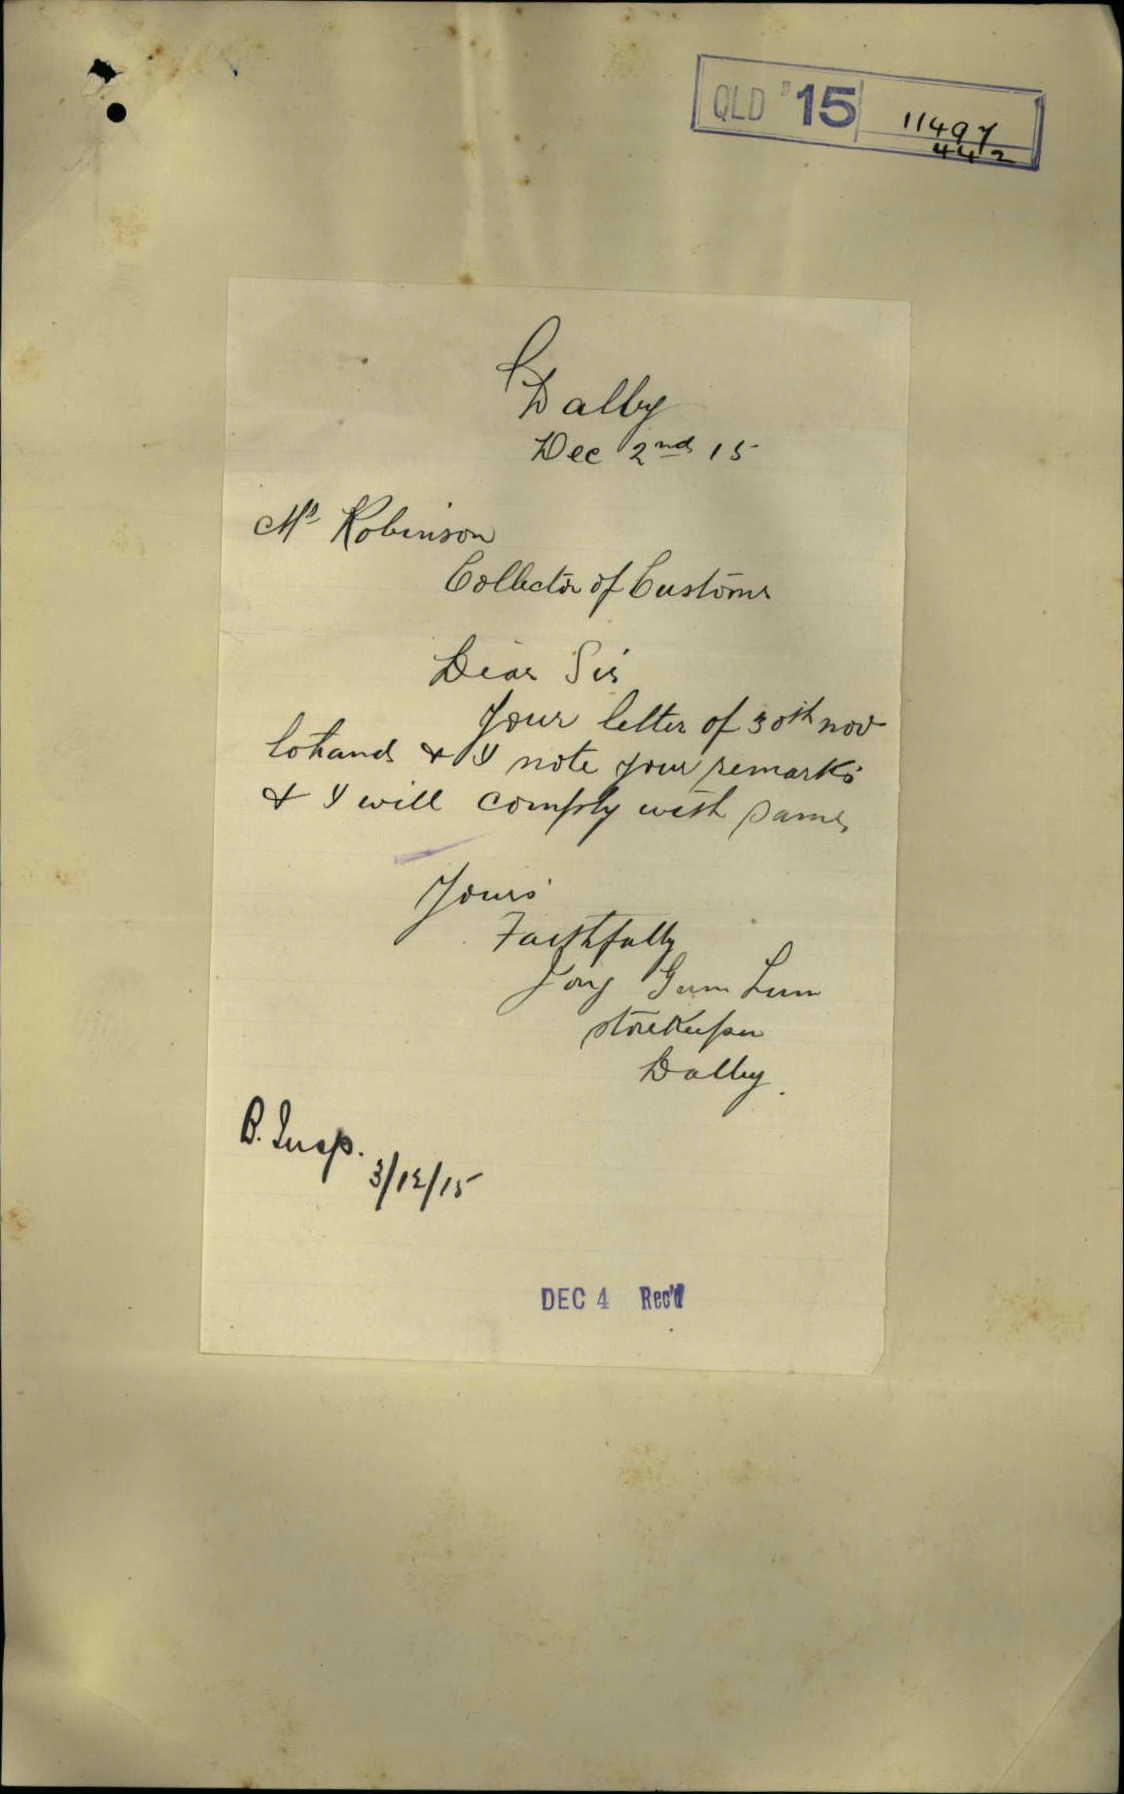 QLD '15
11497
442
Dalby
Dec 2nd 15
Mr Robinson
Collector of Customs
Dear Sir
Your letter of 30th nov
to hand & I note your remarks
& I will comply with same
Yours
Faithfully
Gum Lum
storekeeper
Dalby.
B. Insp.
3/12/15
DEC 4 Rec'd